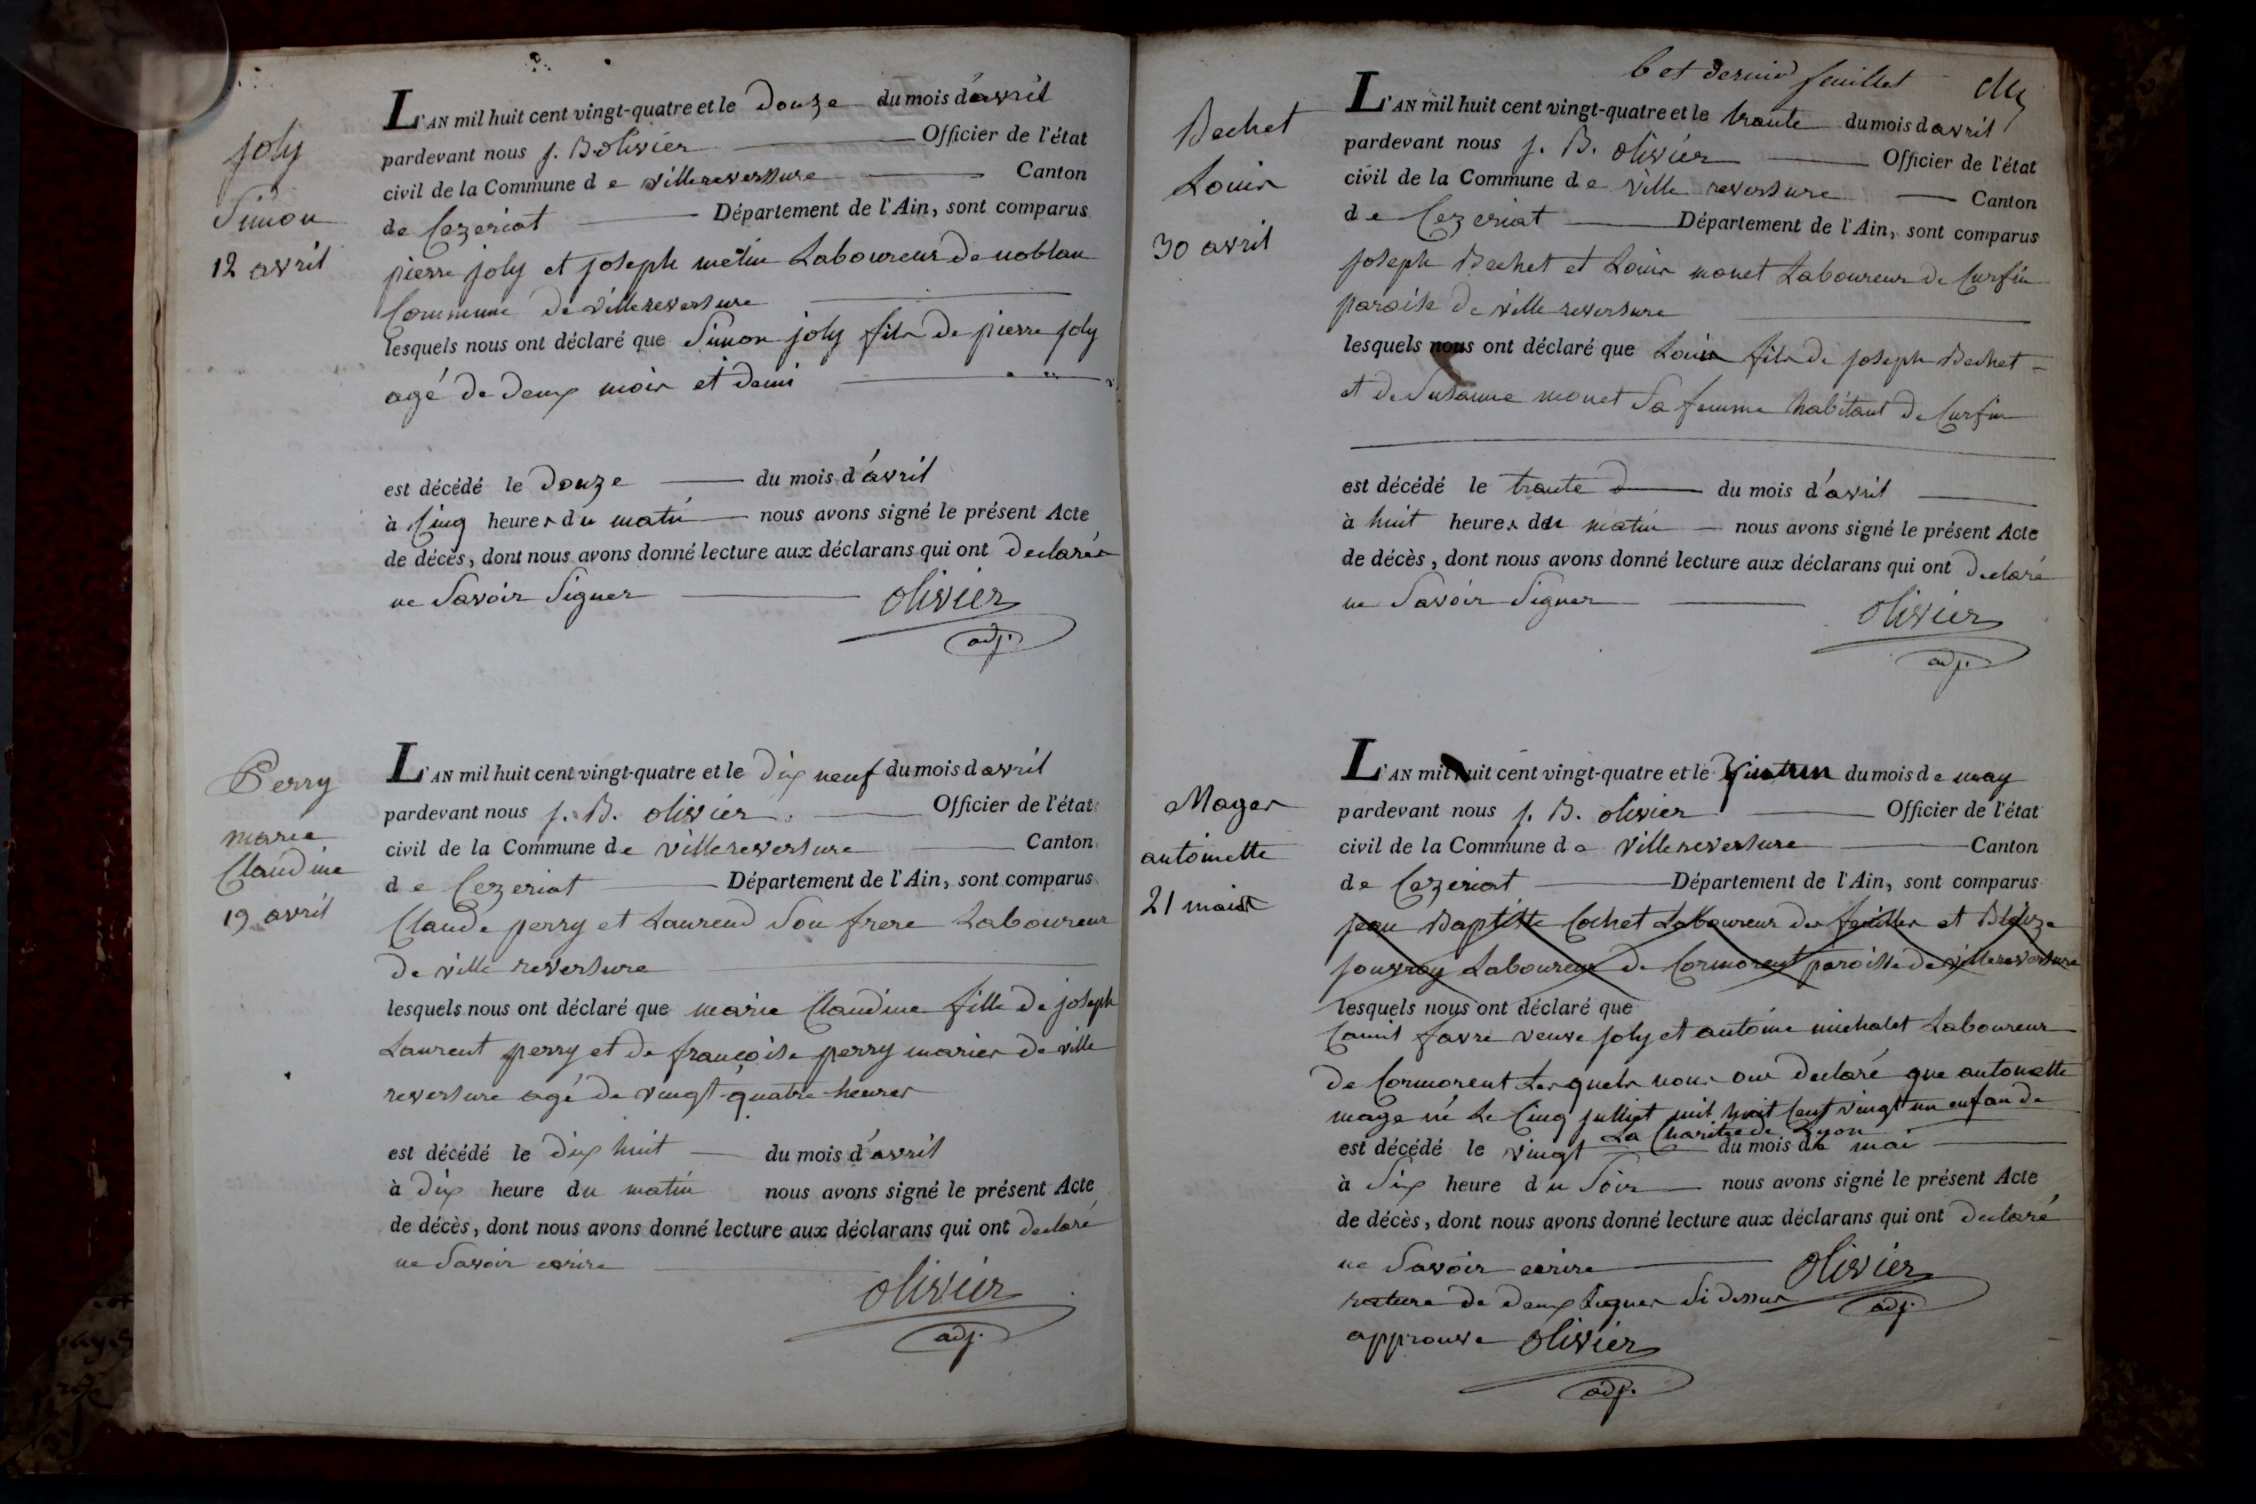 joly
Simon
12 avril
L'AN mil huit cent vingt-quatre et le douze du mois d'avril
pardevant nous j. B olivier Officier de l'état
civil de la Commune de villereversure Canton
de Cezeriat Département de l'Ain, sont comparus
pierre joly et joseph Laboureur de noblan
Commune de villereversure
lesquels nous ont déclaré que Simon joly fils de pierre joly
agé de deux mois et demi
est décédé le douze du mois d'avril
à Cinq heures du matin nous avons signé le présent Acte
de décès, dont nous avons donné lecture aux déclarans qui ont declarés
ne Savoir Signer olivier
adj.
Perry
marie
Claudine
19 avril
L'AN mil huit cent vingt-quatre et le dix neuf du mois d avril
pardevant nous j. B. olivier Officier de l'état
civil de la Commune de villereversure Canton
de Cezeriat Département de l'Ain, sont comparus
Claude perry et Laurend Son frere Laboureur
de ville reversure
lesquels nous ont déclaré que marie Claudine fille de joseph
Laurent perry et de françoise perry maries de ville
reversure agé de vingt-quatre heures
est décédé le dix huit du mois d'avril
à dix heure du matin nous avons signé le présent Acte
de décès, dont nous avons donné lecture aux déclarans qui ont declaré
ne Savoir ecrire
olivier
adj.
6 et dernier feuillet
Bechet
Louis
30 avril
L'AN mil huit cent vingt-quatre et le trante du mois d avril
pardevant nous j. B. olivier Officier de l'état
civil de la Commune de ville reversure Canton
de Cezeriat Département de l'Ain, sont comparus
joseph Bechet et Louis monet Laboureur de Curfin
paroise de ville reversure
lesquels nous ont déclaré que Louis fils de joseph Bechet
et de Susanne monet Sa femme habitant de Curfin
est décédé le trante du mois d'avril
à huit heures du matin nous avons signé le présent Acte
de décès, dont nous avons donné lecture aux déclarans qui ont declaré
ne Savoir Signer
olivier
adj.
Mager
antoinette
21 mai
L'AN mil huit cent vingt-quatre et le du mois de may
pardevant nous j. B. olivier Officier de l'état
civil de la Commune de villereversure Canton
de Cezeriat Département de l'Ain, sont comparus
jean Baptiste Cochet Laboureur des feuilles et
jouvray Laboureur de Cormorent paroisse de villereversure
lesquels nous ont déclaré que
favre veuve joly et antoine michalet Laboureur
de Cormorent Lesquels nous ont declaré que antoinette
mage né Le Cinq julliet mil huit Cent vingt un enfan de
La Charitée de Lyon
est décédé le vingt du mois de mai
à Six heure du Soir nous avons signé le présent Acte
de décès, dont nous avons donné lecture aux déclarans qui ont declaré
ne Savoir ecrire olivier
rature de deux Lignes Si dessus adj.
approuve olivier
adj.